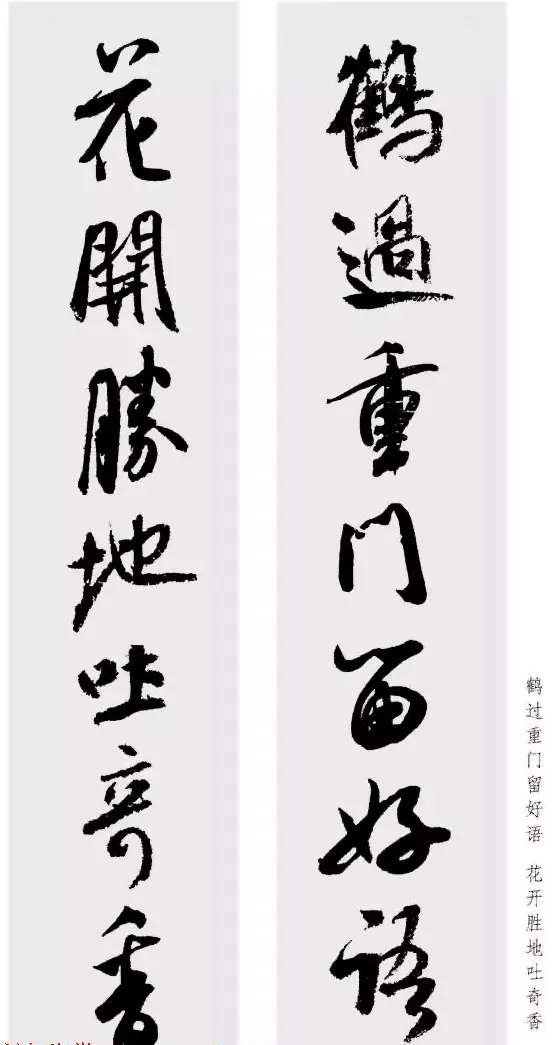 鶴過重門留好語
花開勝地吐奇香
鹤过重门留好语 花开胜地吐奇香